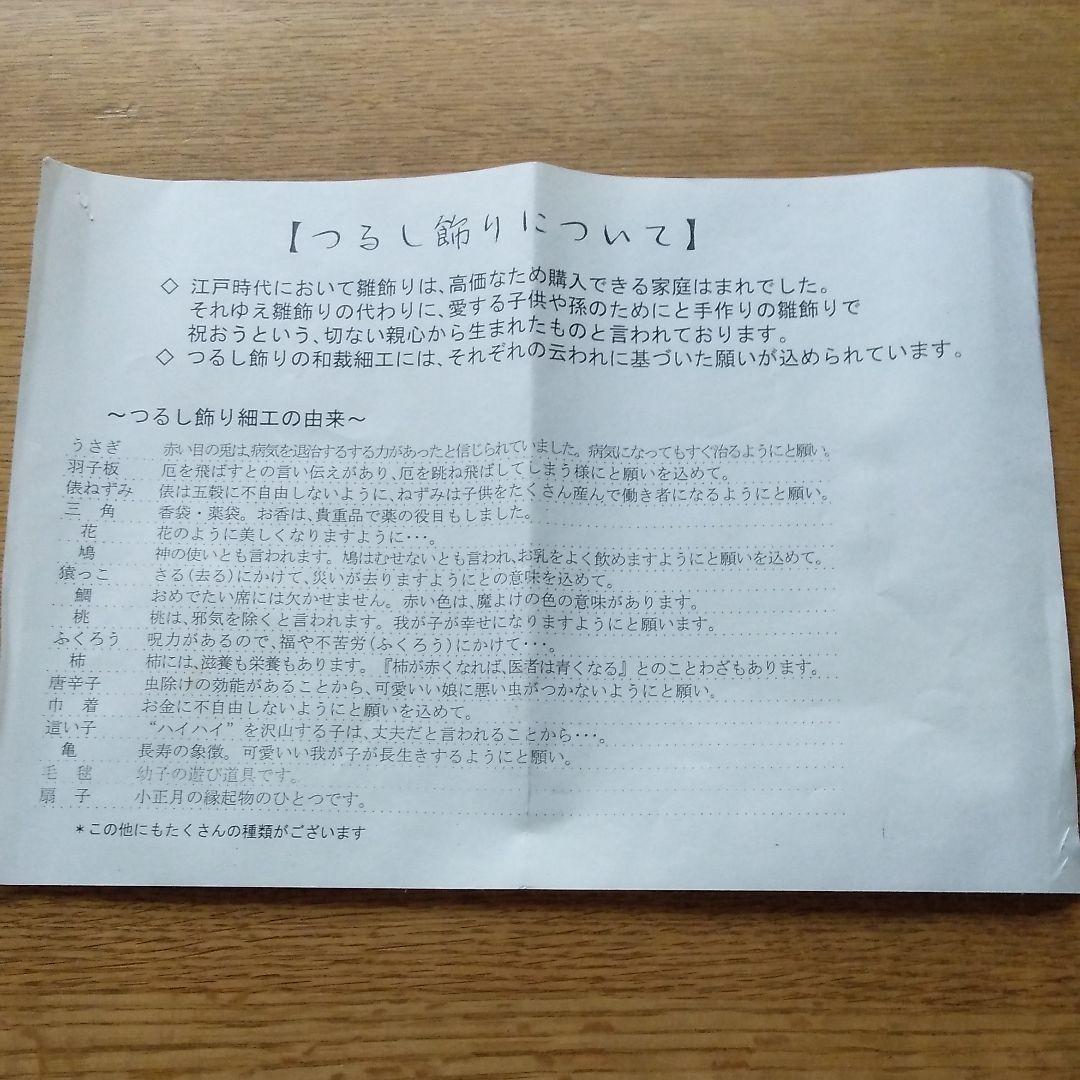 【つるし飾りについて】
◇ 江戸時代において雛飾りは、高価なため購入できる家庭はまれでした。
それゆえ雛飾りの代わりに、愛する子供や孫のためにと手作りの雛飾りで
祝おうという、切ない親心から生まれたものと言われております。
◇ つるし飾りの和裁細工には、それぞれの云われに基づいた願いが込められています。
～つるし飾り細工の由来～
うさぎ 赤い目の兎は、病気を退治するする力があったと信じられていました。病気になってもすぐ治るようにと願い。
羽子板 厄を飛ばすとの言い伝えがあり、厄を跳ね飛ばしてしまう様にと願いを込めて。
俵ねずみ 俵は五穀に不自由しないように、ねずみは子供をたくさん産んで働き者になるようにと願い。
三 角 香袋・薬袋。お香は、貴重品で薬の役目もしました。
花 花のように美しくなりますように・・・。
鳩 神の使いとも言われます。鳩はむせないとも言われ、お乳をよく飲めますようにと願いを込めて。
猿っこ さる(去る)にかけて、災いが去りますようにとの意味を込めて。
鯛 おめでたい席には欠かせません。赤い色は、魔よけの色の意味があります。
桃 桃は、邪気を除くと言われます。我が子が幸せになりますようにと願います。
ふくろう 呪力があるので、福や不苦労(ふくろう)にかけて・・・。
柿 柿には、滋養も栄養もあります。『柿が赤くなれば、医者は青くなる』とのことわざもあります。
唐辛子 虫除けの効能があることから、可愛いい娘に悪い虫がつかないようにと願い。
巾 着 お金に不自由しないようにと願いを込めて。
這い子 “ハイハイ”を沢山する子は、丈夫だと言われることから・・・。
亀 長寿の象徴。可愛いい我が子が長生きするようにと願い。
毛 毬 幼子の遊び道具です。
扇 子 小正月の縁起物のひとつです。
＊この他にもたくさんの種類がございます